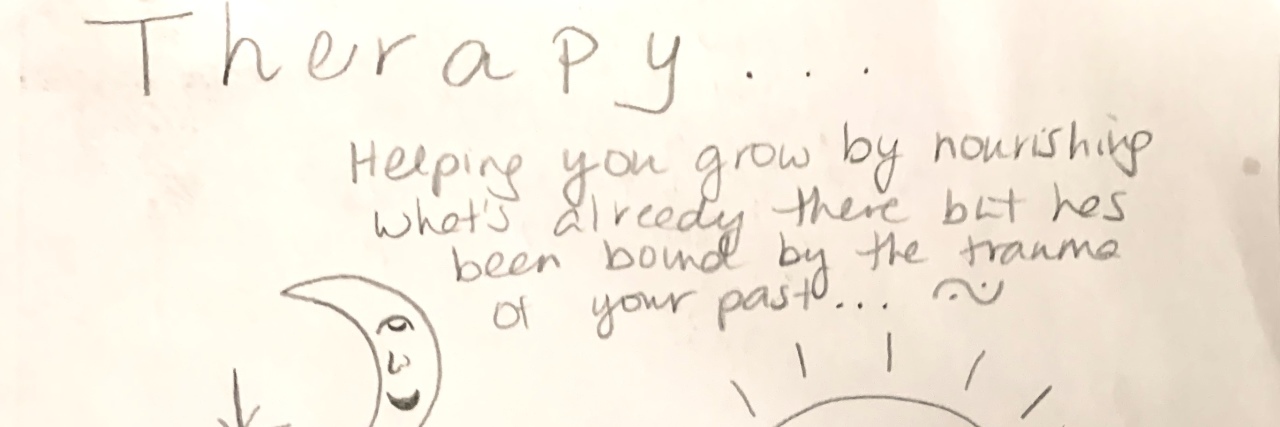 Therapy...
Helping you grow by nourishing
what's already there but has
been bound by the trauma
of your past...